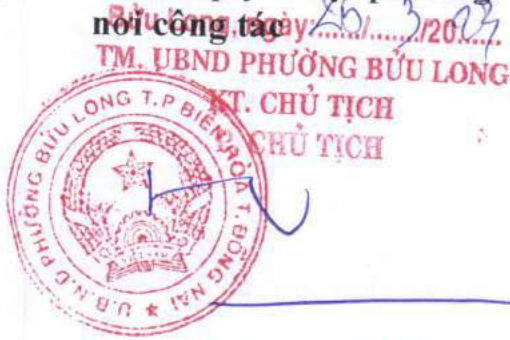 nơi công tác
Bửu Long, ngày 26/3/2023
TM. UBND PHƯỜNG BỬU LONG
KT. CHỦ TỊCH
P. CHỦ TỊCH
U.B.N.D PHƯỜNG BỬU LONG T.P BIÊN HÒA T. ĐỒNG NAI